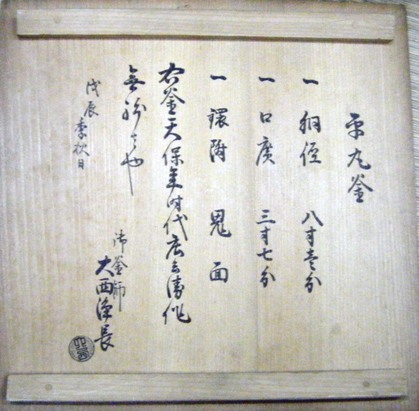 平丸釜
一 胴径 八寸壱分
一 口廣 三寸七分
一 鐶附 鬼面
右釜天保年時代作
無紛者也
戊辰季秋日
御釜師
大西浄長